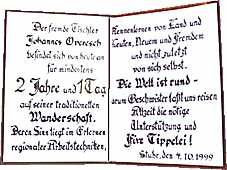 Der fremde Tischler
Johannes Overesch
befindet sich von heute an
für mindestens
2 Jahre und 1 Tag
auf seiner traditionellen
Wanderschaft.
Deren Sinn liegt im Erlernen
regionaler Arbeitstechniken,
Kennenlernen von Land und
Leuten, Neuem und Fremdem
und nicht zuletzt
von sich selbst.
Die Welt ist rund -
drum Geschwister laßt uns reisen
Allzeit die nötige
Unterstützung und
Fixe Tippelei!
Stuhr, den 4.10.1999